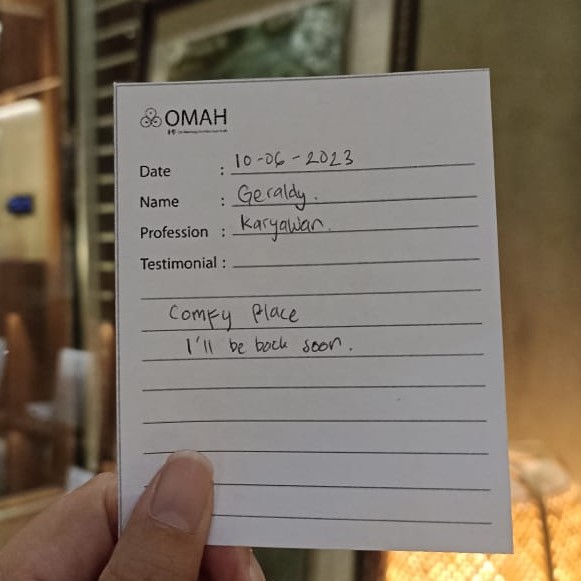 OMAH
Date : 10-06-2023
Name : Geraldy.
Profession : Karyawan.
Testimonial :
Comfy Place
I'll be back soon.